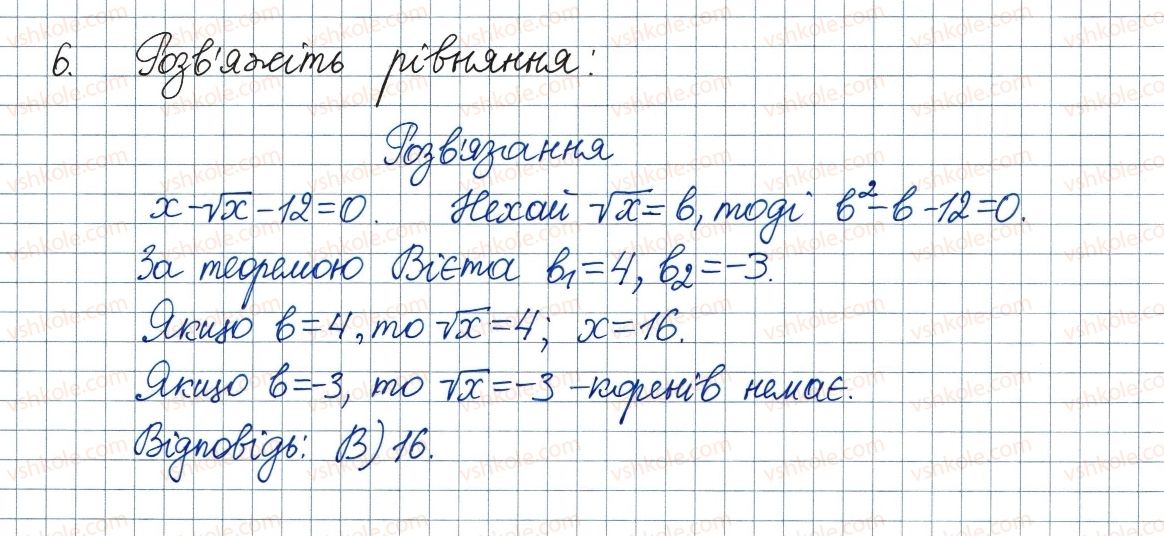 6. Розв'яжіть рівняння:
Розв'язання
x-√x-12=0. Нехай √x=в, тоді в²-в-12=0.
За теоремою Вієта в₁=4, в₂=-3.
Якщо в=4, то √x=4; x=16.
Якщо в=-3, то √x=-3 -коренів немає.
Відповідь: В) 16.